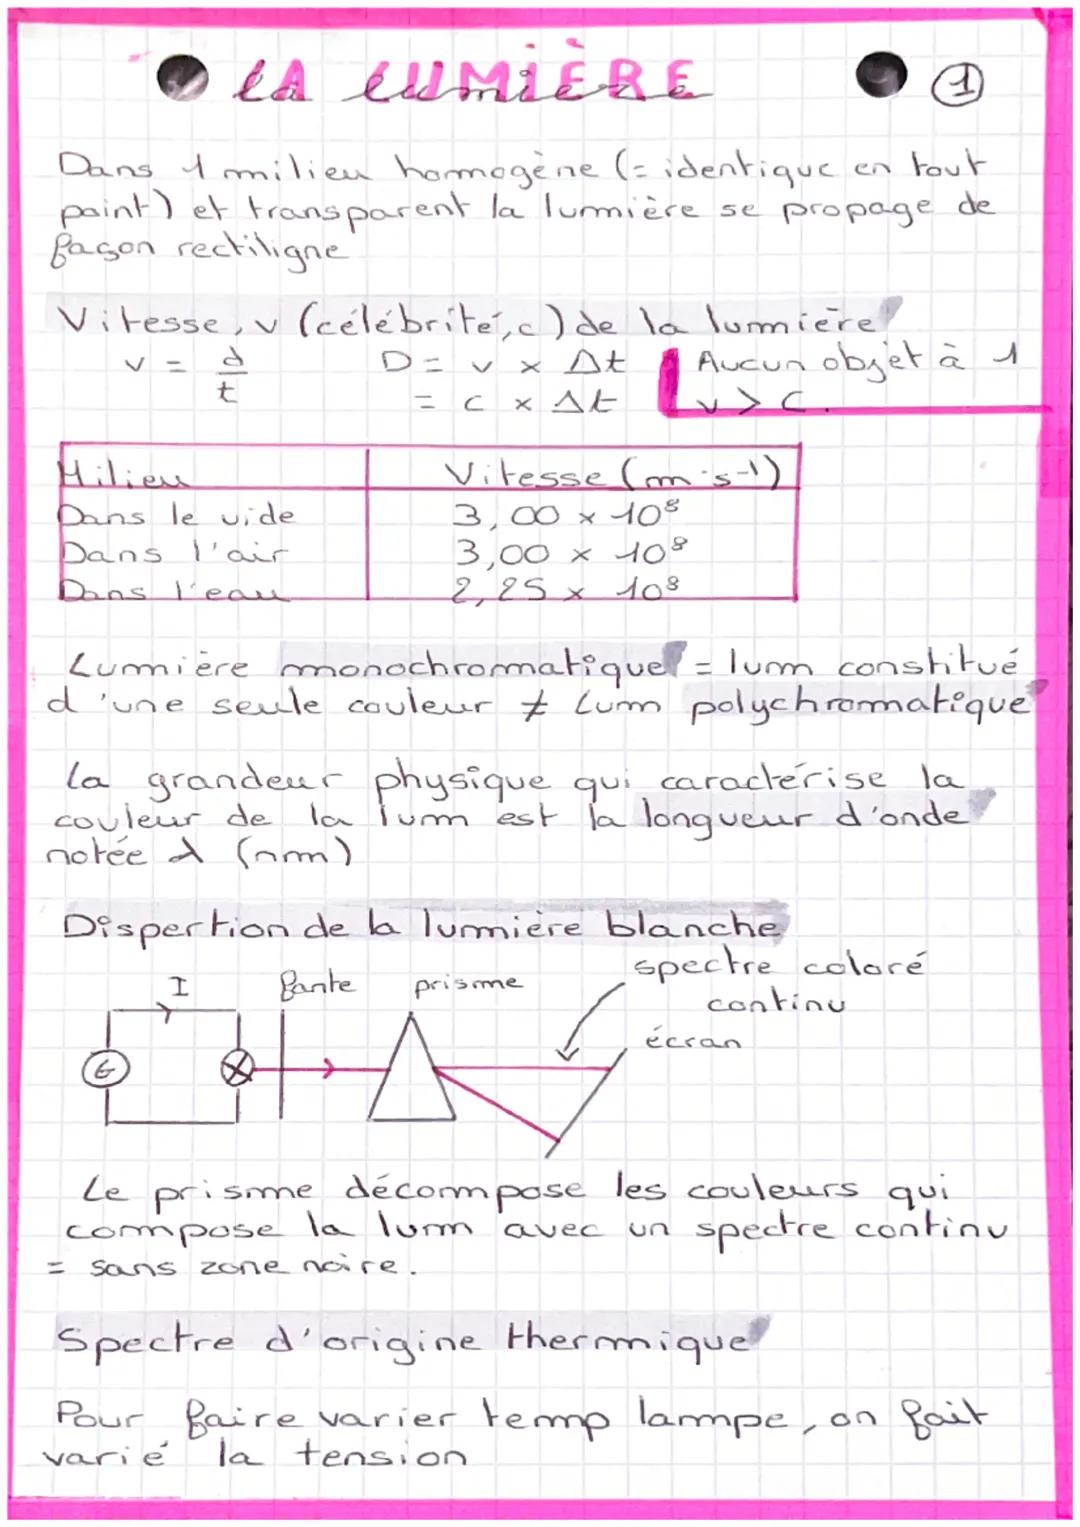 LA LUMIÈRE
1
Dans 1 milieu homogène (= identique en tout
point) et transparent la lumière se propage de
façon rectiligne
Vitesse, v (célébrité, c) de la lumière
v = d/t
D = v × Δt
= c × Δt
Aucun objet à 1
v > c.
Milieu Vitesse (m·s⁻¹)
Dans le vide 3,00 × 10⁸
Dans l'air 3,00 × 10⁸
Dans l'eau 2,25 × 10⁸
Lumière monochromatique = lum constitué
d'une seule couleur ≠ Lum polychromatique
La grandeur physique qui caractérise la
couleur de la lum est la longueur d'onde
notée λ (nm)
Dispertion de la lumière blanche
I fante prisme spectre coloré
continu
écran
G
Le prisme décompose les couleurs qui
compose la lum avec un spectre continu
= sans zone noire.
Spectre d'origine thermique
Pour faire varier temp lampe, on fait
varié la tension